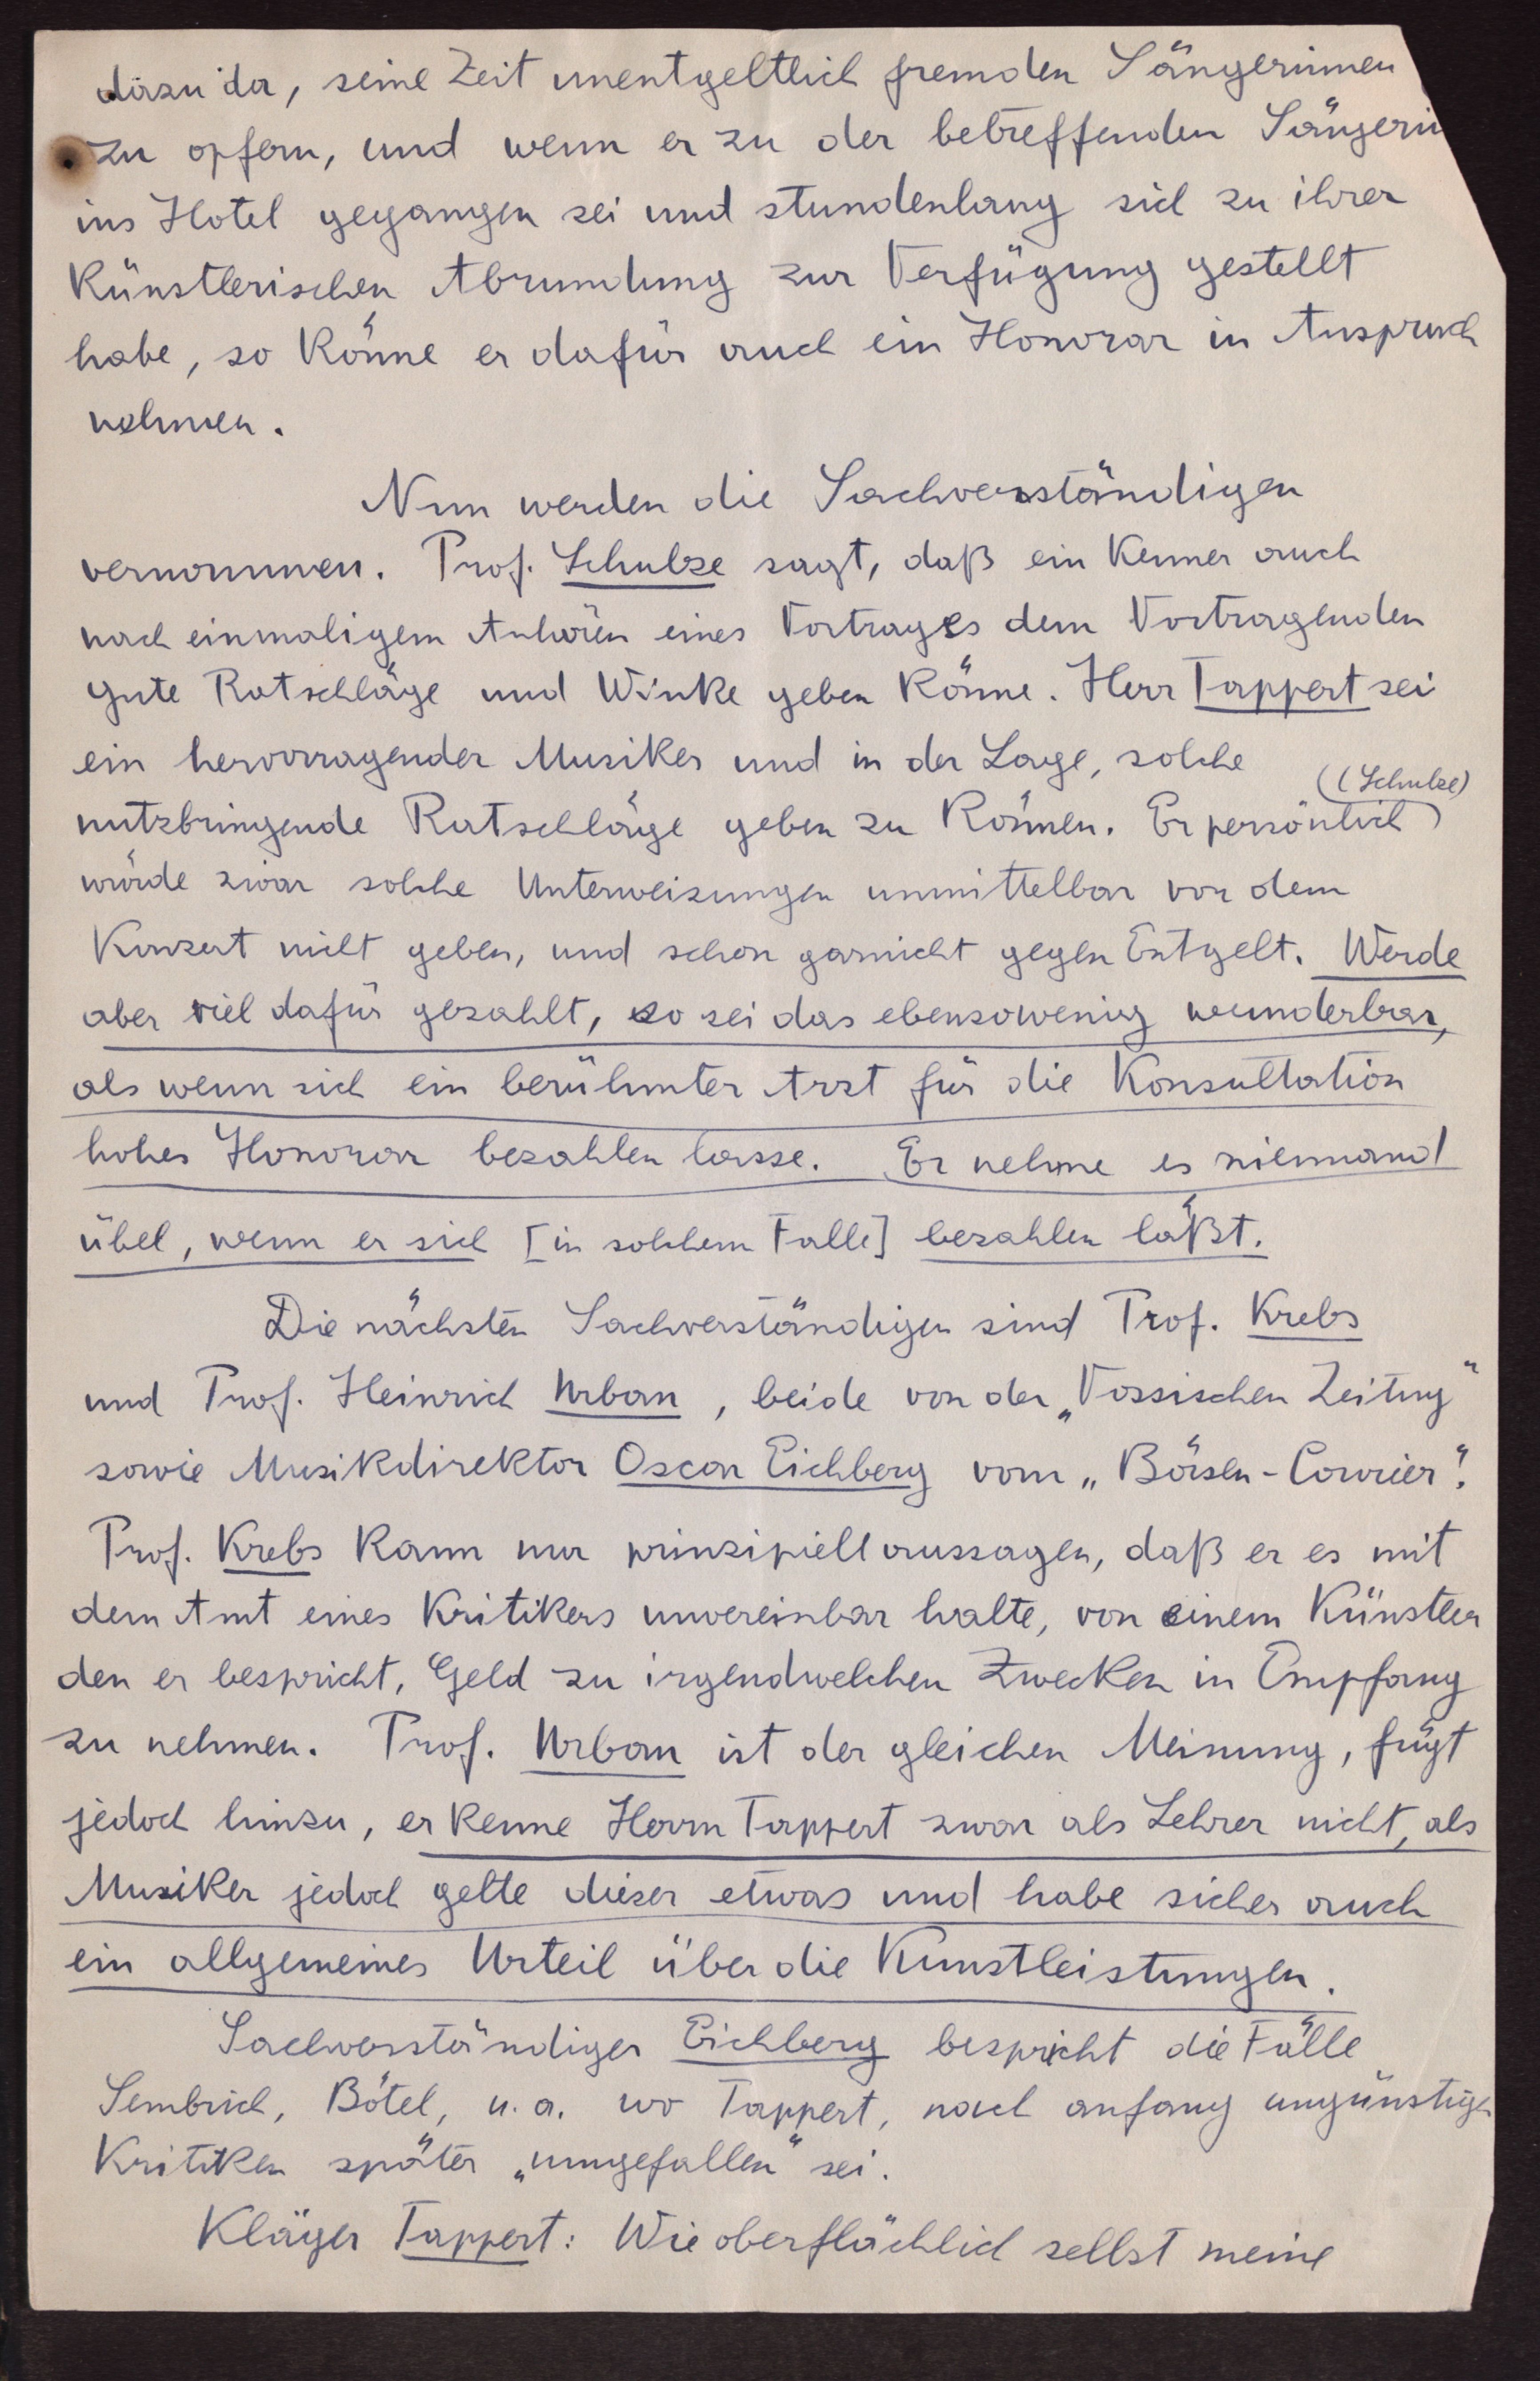 dazu da, seine Zeit unentgeltlich fremden Sängerinnen
zu opfern, und wenn er zu der betreffenden Sängerin
ins Hotel gegangen sei und stundenlang sich zu ihrer
Künstlerischen Abrundung zur Verfügung gestellt
habe, so Könne er dafür auch ein Honorar in Anspruch
nehmen.
Nun werden die Sachverständigen
vernommen. Prof. Schulze sagt, daß ein Kenner auch
nach einmaligem Anhören eines Vortrages dem Vortragenden
gute Ratschläge und Winke geben Könne. Herr Tappert sei
ein hervorragender Musiker und in der Lage, solche
(Schulze)
nutzbringende Ratschläge geben zu Können. Er persönlich
würde zwar solche Unterweisungen unmittelbar vor dem
Konzert nicht geben, und schon garnicht gegen Entgelt. Werde
aber viel dafür gezahlt, so sei das ebensowenig wunderbar,
als wenn sich ein berühmter Arzt für die Konsultation
hohes Honorar bezahlen lasse. Er nehme es niemand
übel, wenn er sich [in solchem Falle] bezahlen läßt.
Die nächsten Sachverständigen sind Prof. Krebs
und Prof. Heinrich Urban, beide von der „Vossischen Zeitung“
sowie Musikdirektor Oscar Eichberg vom „Börsen-Courier“.
Prof. Krebs Kann nur prinzipiell aussagen, daß er es mit
dem Amt eines Kritikers unvereinbar halte, von einem Künstler
den er bespricht, Geld zu irgendwelchen Zwecken in Empfang
zu nehmen. Prof. Urban ist der gleichen Meinung, fügt
jedoch hinzu, er Kenne Herrn Tappert zwar als Lehrer nicht, als
Musiker jedoch gelte dieser etwas und habe sicher auch
ein allgemeines Urteil über die Kunstleistungen.
Sachverständiger Eichberg bespricht die Fälle
Sembrich, Bötel, u.a. wo Tappert, nach anfang ungünstigen
Kritiken später „umgefallen“ sei.
Kläger Tappert: Wie oberflächlich selbst meine